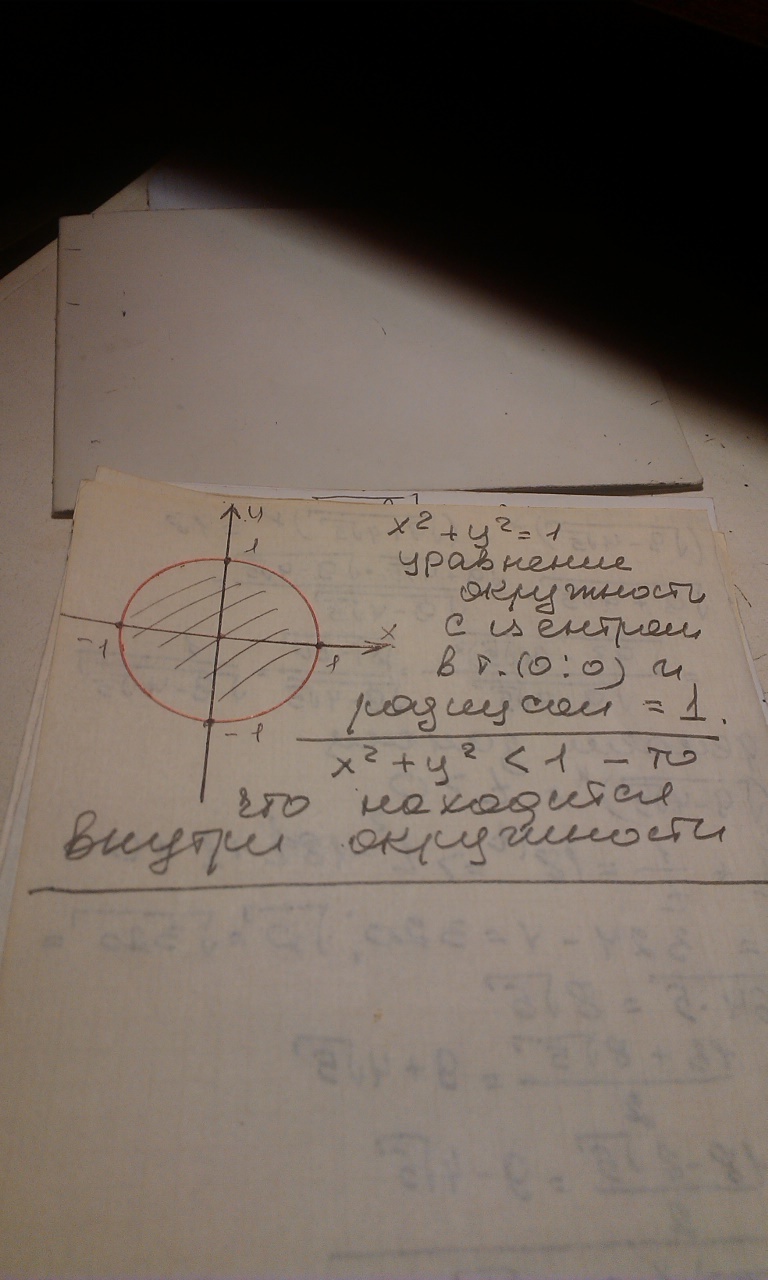 y
1
x
-1
1
-1
x² + y² = 1
уравнение
окружности
с центром
в т. (0:0) и
радиусом = 1.
x² + y² < 1 - то
что находится
внутри окружности